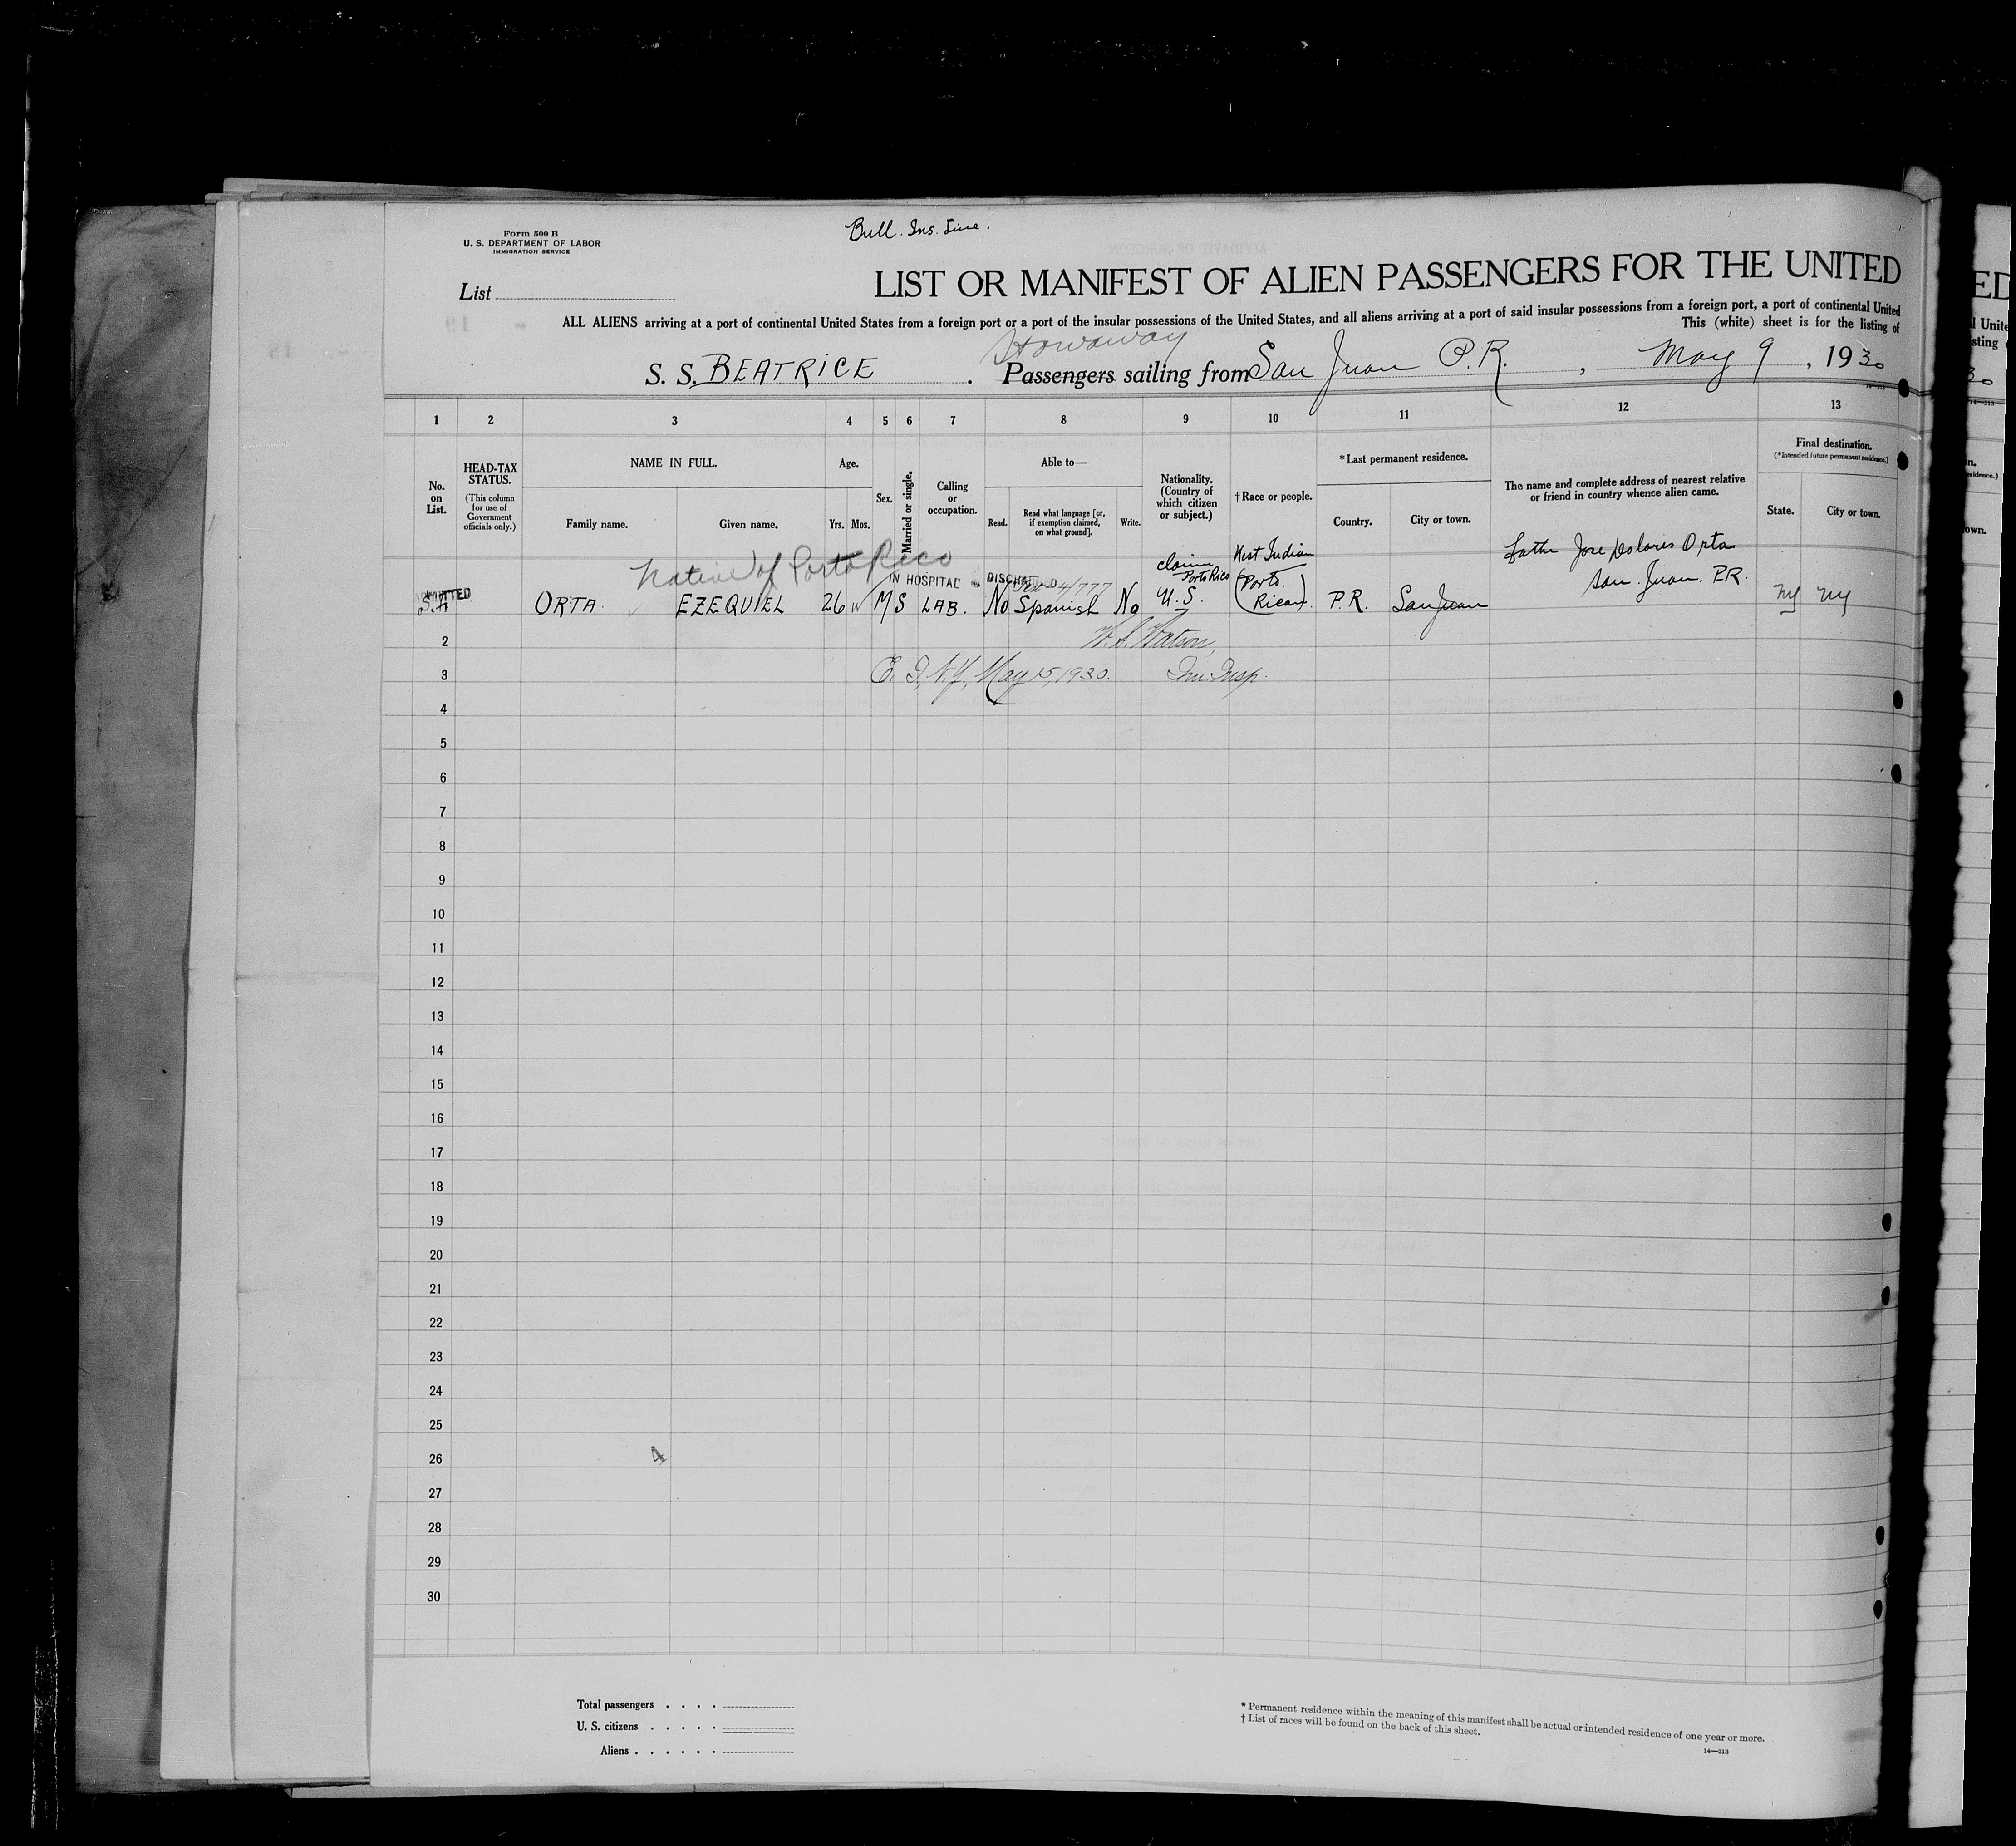 Form 500 B
U. S. DEPARTMENT OF LABOR
IMMIGRATION SERVICE
Bull. Ins. Line.
List
LIST OR MANIFEST OF ALIEN PASSENGERS FOR THE UNITED
ALL ALIENS arriving at a port of continental United States from a foreign port or a port of the insular possessions of the United States, and all aliens arriving at a port of said insular possessions from a foreign port, a port of continental United
This (white) sheet is for the listing of
Stowaway
S. S. BEATRICE . Passengers sailing from San Juan P.R. , May 9 , 1930
14—213
1 2 3 4 5 6 7 8 9 10 11 12 13
No. on List.
HEAD-TAX STATUS.
(This column for use of Government officials only.)
NAME IN FULL.
Family name. Given name.
Age.
Yrs. Mos.
Sex.
Married or single.
Calling or occupation.
Able to—
Read. Read what language [or, if exemption claimed, on what ground]. Write.
Nationality. (Country of which citizen or subject.)
†Race or people.
*Last permanent residence.
Country. City or town.
The name and complete address of nearest relative or friend in country whence alien came.
Final destination.
(*Intended future permanent residence.)
State. City or town.
Native of Porto Rico
IN HOSPITAL
claim Porto Rico
West Indian
father Jose Dolores Orta
San Juan. P.R.
ADMITTED
S.A. ORTA. EZEQUIEL 26 M S LAB. No Spanish No U.S. (Porto Rican) P.R. San Juan NY NY
2
W. S. Watson,
3
E. I., N.Y., May 15, 1930. Im. Insp.
4
5
6
7
8
9
10
11
12
13
14
15
16
17
18
19
20
21
22
23
24
25
26
4
27
28
29
30
Total passengers . . . .
U. S. citizens . . . . .
Aliens . . . . . .
* Permanent residence within the meaning of this manifest shall be actual or intended residence of one year or more.
† List of races will be found on the back of this sheet.
14—213